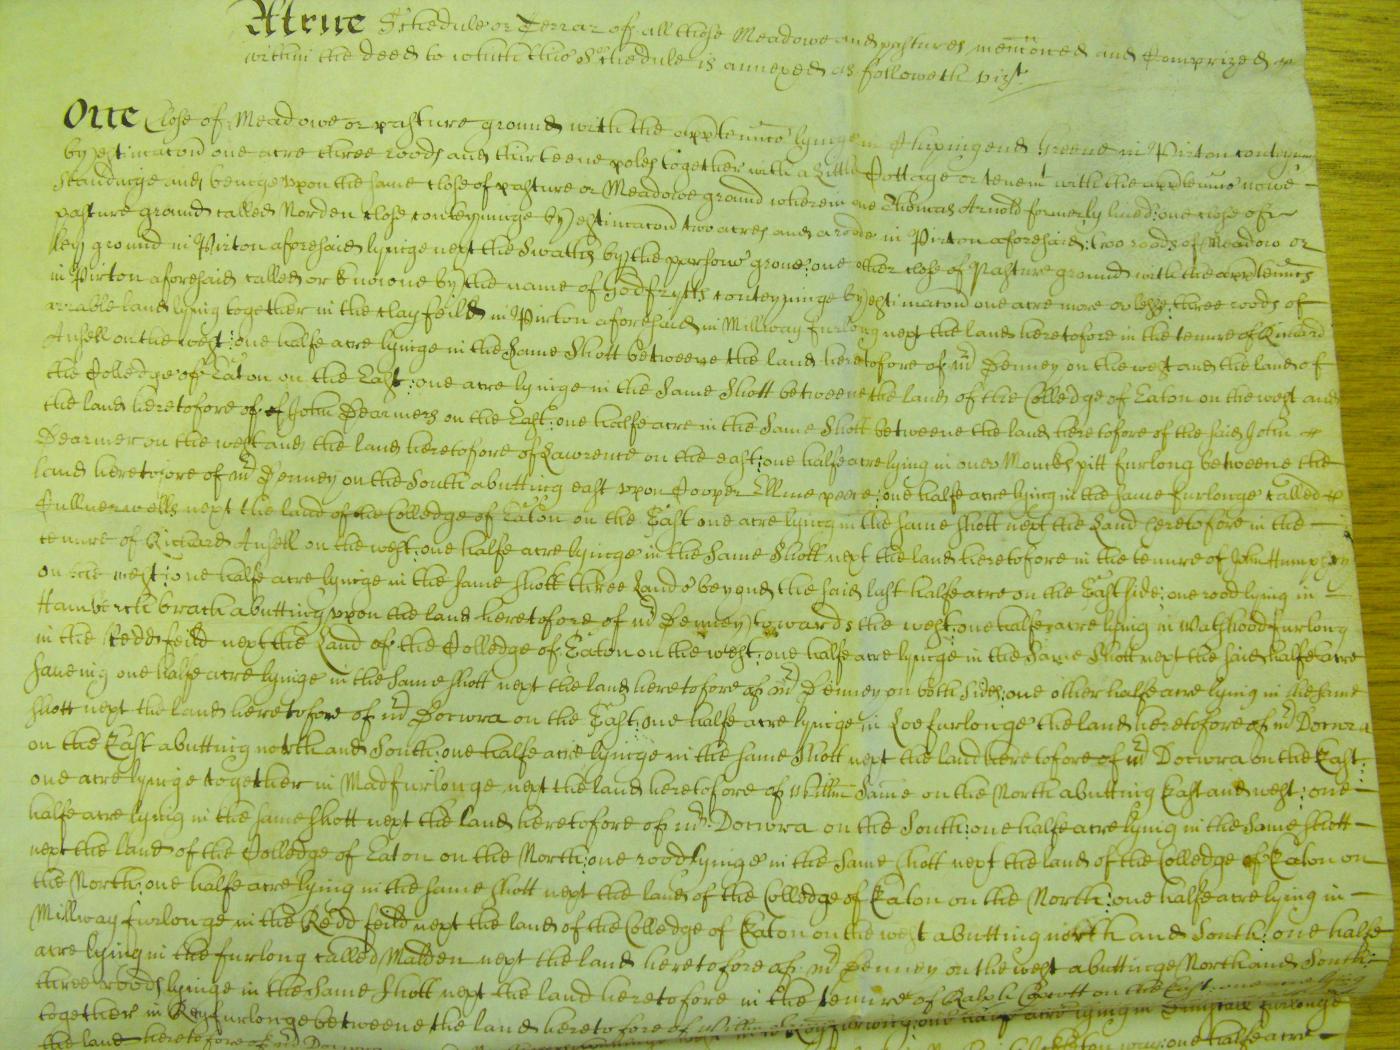 A true Schedule or Terrar of all those Meadowe and pastures menconed and Comprized
within the deed to which this Schedule is annexed as followeth vizt
One Close of Meadowe or pasture ground with the apptenncs lyinge in Chipingend Greene in Pirton conteyninge
by estimacon one acre three roods and thirteene poles together with a Little Cottage or tenemt with the apptenncs nowe
standinge and beinge vpon the same close of pasture or Meadowe ground wherein one Thomas Arnold formerly lived: one close of
pasture ground called Norden close conteyninge by estimacon two acres and a roode in Pirton aforesaid: two roods of Meadow or
ley ground in Pirton aforesaid lyinge next the Swathis by the parsons grove: one other close of Pasture ground with the apptenncs
in Pirton aforesaid called or knowne by the name of Godfrytts conteyninge by estimacon one acre more or lesse: three roods of
arrable land lying together in the clay feild in Pirton aforesaid in Millway furlong next the land heretofore in the tenure of Richard
Ansell on the west: one halfe acre lyinge in the Same Shott betweene the land heretofore of mr Denney on the west and the land of
the Colledge of Eaton on the East: one acre lyinge in the same Shott betweene the land of the Colledge of Eaton on the west and
the land heretofore of of John Dearmers on the East: one halfe acre in the Same Shott betweene the land heretofore of the said John
Dearmer on the west and the land heretofore of Lawrence on the east: one halfe acre lying in Moncks pitt furlong betweene the
land heretofore of mr Denney on the South abutting east vpon Cooper: one halfe acre lying in the same furlonge called
Cullnerwells next the land of the Colledge of Eaton on the East one acre lying in the same shott next the Land heretofore in the
tenure of Richard Ansell on the west: one halfe acre lyinge in the Same Shott next the land heretofore in the tenure of John Humphrey
on the west: one halfe acre lyinge in the same shott three Lands beyond the said last halfe acre on the East side: one rood lying in
abutting vpon the land heretofore of mr Denney towards the west: one halfe acre lying in furlong
in the Redd feild next the Land of the Colledge of Eaton on the west: one halfe acre lyinge in the Same Shott next the said halfe acre
saveing one halfe acre lyinge in the Same shott next the land heretofore of mr Denney on both sides: one other halfe acre lying in the same
shott next the land heretofore of mr Docwra on the East: one halfe acre lyinge in furlonge the land heretofore of mr Docwra
on the East abutting north and South: one halfe acre lyinge in the same Shott next the land heretofore of mr Docwra on the East:
one acre lyinge together in Madfurlonge next the land heretofore of on the North abutting East and west: one
halfe acre lying in the same shott next the land heretofore of mr Docwra on the South: one halfe acre lying in the Same shott
next the land of the Colledge of Eaton on the North: one rood lyinge in the Same shott next the land of the Colledge of Eaton on
the North: one halfe acre lying in the same shott next the land of the Colledge of Eaton on the North: one halfe acre lying in
Millway furlonge in the Redd feild next the land of the Colledge of Eaton on the west abutting north and South: one halfe
acre lying in the furlong called Malden next the land heretofore of mr Denney on the west abuttinge North and South:
three roods lyinge in the Same Shott next the land heretofore in the tenure of Ralph on the East: one acre lying
together in furlonge betweene the land heretofore of one halfe acre lying in furlonge
the land heretofore of mr Docwra one halfe acre